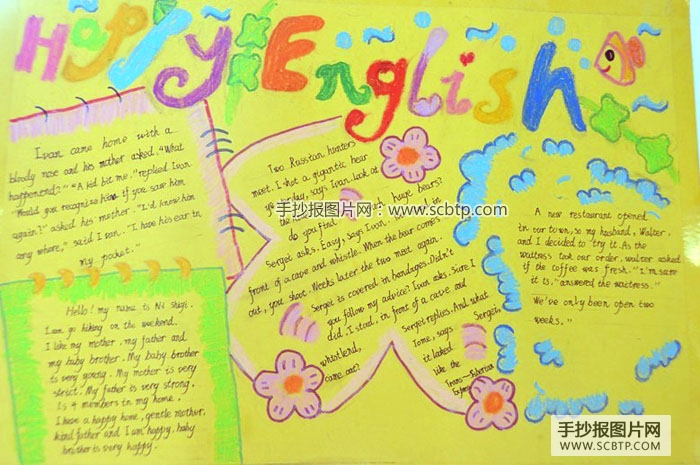 Happy English
Ivan came home with a
bloody nose and his mother asked. "What
happenond?" "A kid bit me." replied Ivan
"Would you recognize him if you saw him
again?" asked his mother. "I'd know him
any where," said Ivan. "I have his ear in
my pocket."
Hello! my name is Ni shiyi.
I am go hiking on the weekend.
I like my mother, my father and
my baby brother. My baby brother
is very young. My mother is very
strict. My father is very strong.
Is 4 members in my home.
I have a happy home, gentle mother,
kind father and I am happy, baby
brother is very happy.
Two Russian hunters
meet. I shot a gigantic bear
day, says Ivan. Look at
do you find huge bears?
Sergei asks. Easy, says Ivan.
front of a cave and whistle. When the bear comes
out, you shoot. Weeks later the two meet again.
Sergei is covered in bandages. Didn't
you follow my advice? Ivan asks. Sure I
did. I stood, in front of a cave and
whistlend, Sergei replies. And what
came out? Sergei,
Iome, says
it looked
like the
Trans-Siberian
Express
A new restaurant opened
in our town, so my husband, Walter,
and I decided to try it. As the
waitress took our order, walter asked
if the coffee was fresh. "I'm sure
it is," answered the waitress."
We've only been open two
weeks."
手抄报图片网:www.scbtp.com
手抄报图片网
WWW.SCBTP.COM